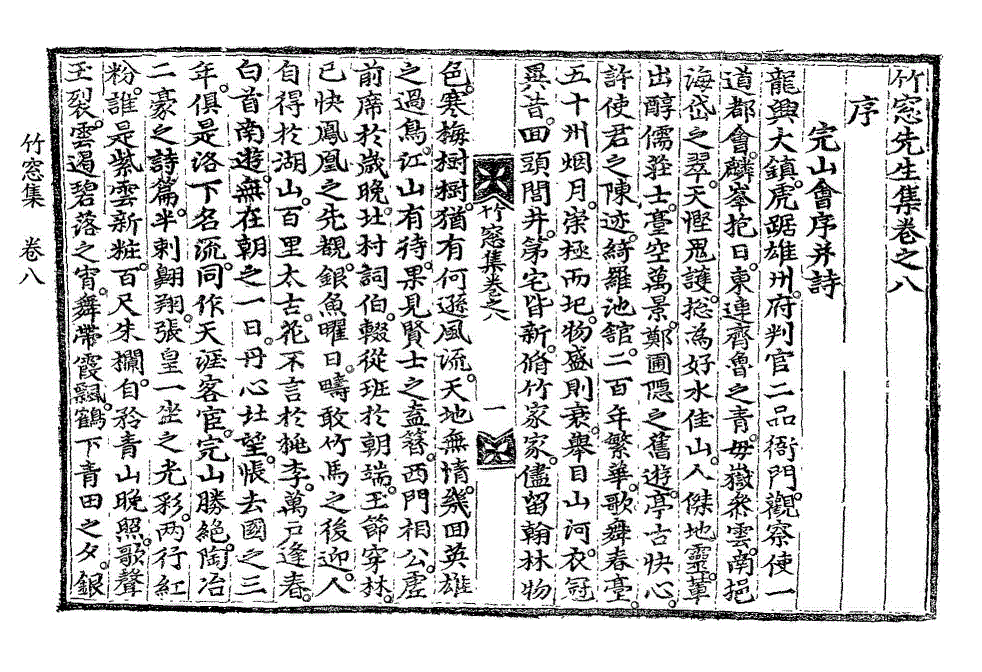 竹窓先生集卷之八
序
完山會序并詩
龍興大鎮。虎踞雄州。府判官二品衙門。觀察使一
道都會。麟峯抱日。東連齊魯之青。母嶽叅雲。南挹
海岱之翠。天慳鬼護。捴為好水佳山。人傑地靈。軰
出醇儒莊士。臺空萬景。鄭圃隱之舊遊。亭古快心。
許使君之陳迹。綺羅池舘。二百年繁華。歌舞春臺。
五十州烟月。崇極而圮。物盛則衰。舉目山河。衣冠
異昔。回頭閭井。苐宅皆新。脩竹家家。儘留翰林物
竹窓集卷之八 一
色。寒梅樹樹。猶有何遜風流。天地無情。幾回英雄
之過鳥。江山有待。果見賢士之盍簪。西門相公。虗
前席於歲晚。北村詞伯。輟從班於朝端。玉節穿林。
已快鳳凰之先覩。銀魚曜日。疇敢竹馬之後迎。人
自得於湖山。百里太古。花不言於桃李。萬戶逢春。
白首南遊。無在朝之一日。丹心北望。悵去國之三
年。俱是洛下名流。同作天涯客宦。完山勝絶。陶冶
二豪之詩篇。半剌翺翔。張皇一坐之光彩。两行紅
粉。誰是紫雲新粧。百尺朱欄。自矜青山晚照。歌聲
玉裂。雲遏碧落之宵。舞帶霞飄。鶴下青田之夕。銀
竹窓集 卷八